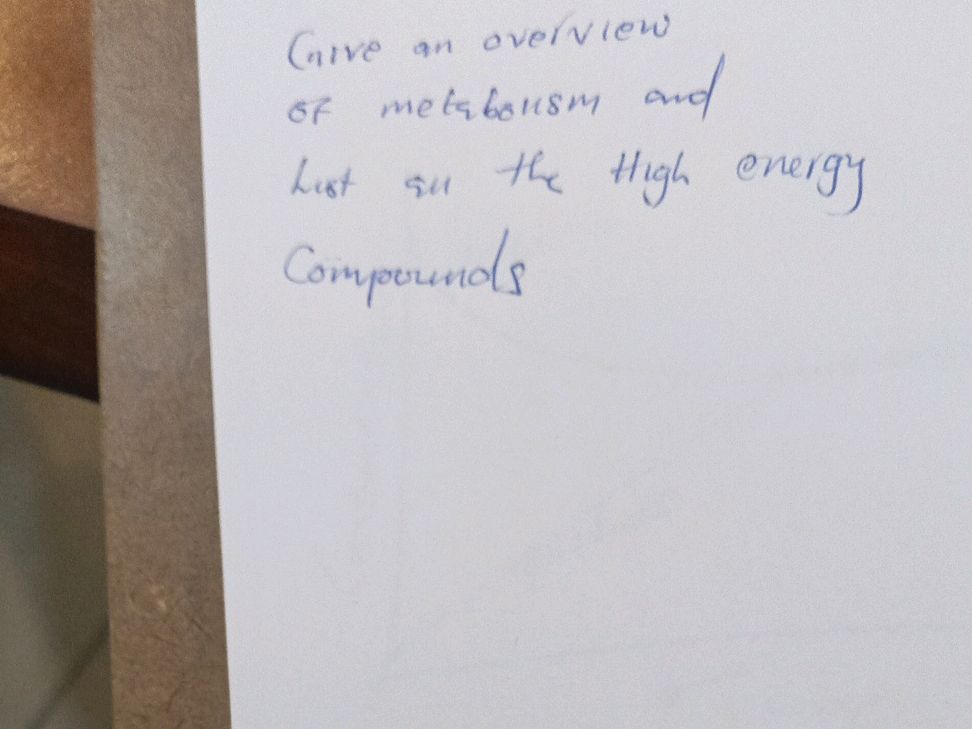 Give an overview
of metabolism and
List all the High energy
Compounds